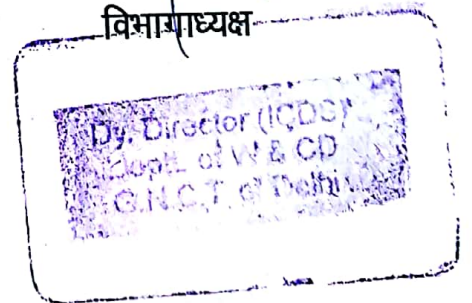 विभागाध्यक्ष
Dy. Director (ICDS)
Deptt. of W & CD
G.N.C.T. of Delhi